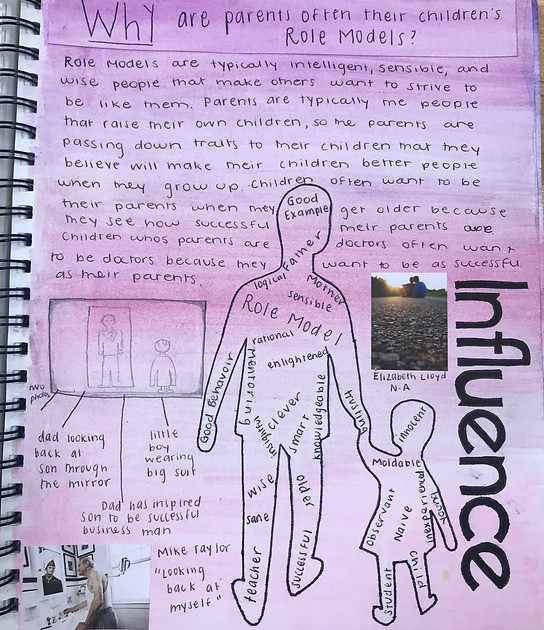 Why are parents often their children's
Role Models?
Role Models are typically intelligent, sensible, and
wise people that make others want to strive to
be like them. Parents are typically the people
that raise their own children, so the parents are
passing down traits to their children that they
believe will make their children better people
when they grow up. Children often want to be
their parents when they get older because
they see how successful their parents are
Children whos parents are doctors often want
to be doctors because they want to be as successful
as their parents.
Good
Example
Father
logical
Mother
sensible
Role Model
rational
enlightened
Mentoring
Good Behavior
insightful
clever
smart
knowledgeable
wise
older
sane
teacher
successful
trusting
Innocent
Moldable
Observant
Naive
inexperienced
Young
Student
Child
Influence
Elizabeth Lloyd
N.A
two
photos
dad looking
back at
son through
the mirror
little
boy
wearing
big suit
Dad has inspired
son to be successful
business man
Mike Taylor
"Looking
back at
myself"